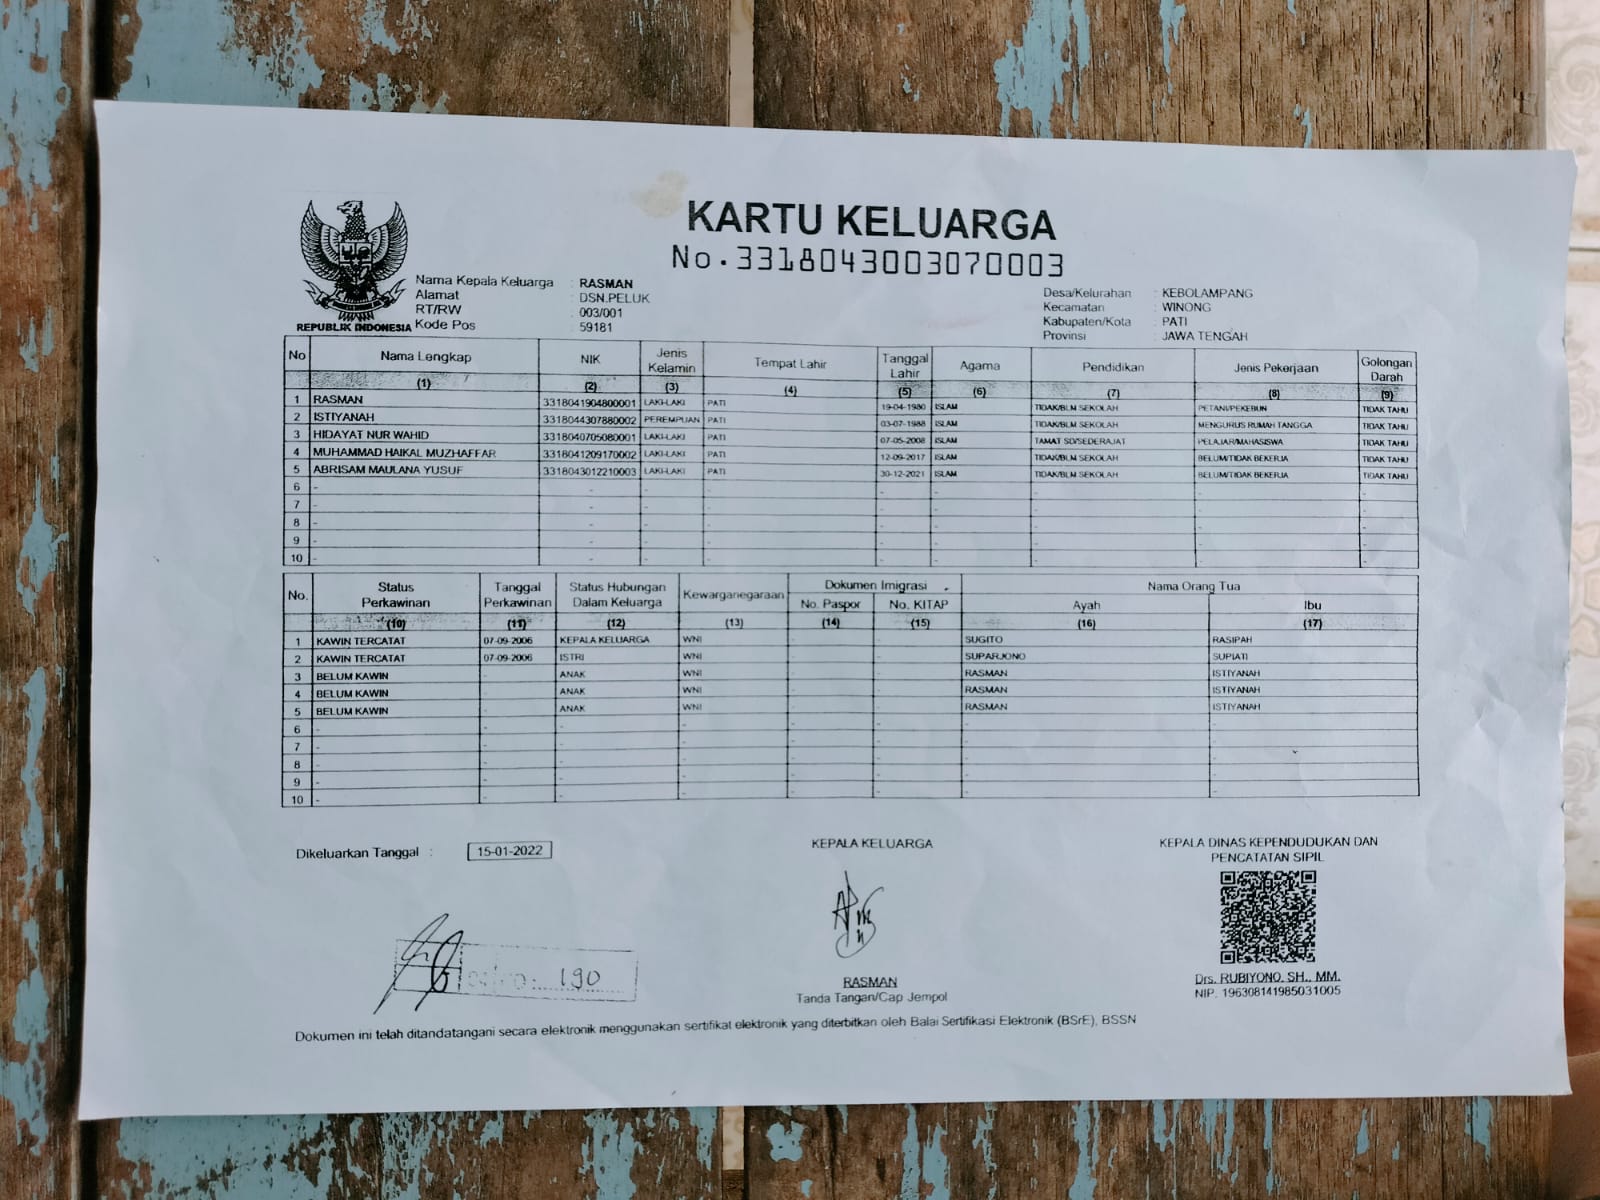 KARTU KELUARGA
No. 3318043003070003
Nama Kepala Keluarga : RASMAN
Alamat : DSN.PELUK
RT/RW : 003/001
Kode Pos : 59181
REPUBLIK INDONESIA
Desa/Kelurahan : KEBOLAMPANG
Kecamatan : WINONG
Kabupaten/Kota : PATI
Provinsi : JAWA TENGAH
No Nama Lengkap NIK Jenis Kelamin Tempat Lahir Tanggal Lahir Agama Pendidikan Jenis Pekerjaan Golongan Darah
(1) (2) (3) (4) (5) (6) (7) (8) (9)
1 RASMAN 3318041904800001 LAKI-LAKI PATI 19-04-1980 ISLAM TIDAK/BLM SEKOLAH PETANI/PEKEBUN TIDAK TAHU
2 ISTIYANAH 3318044307880002 PEREMPUAN PATI 03-07-1988 ISLAM TIDAK/BLM SEKOLAH MENGURUS RUMAH TANGGA TIDAK TAHU
3 HIDAYAT NUR WAHID 3318040705080001 LAKI-LAKI PATI 07-05-2008 ISLAM TAMAT SD/SEDERAJAT PELAJAR/MAHASISWA TIDAK TAHU
4 MUHAMMAD HAIKAL MUZHAFFAR 3318041209170002 LAKI-LAKI PATI 12-09-2017 ISLAM TIDAK/BLM SEKOLAH BELUM/TIDAK BEKERJA TIDAK TAHU
5 ABRISAM MAULANA YUSUF 3318043012210003 LAKI-LAKI PATI 30-12-2021 ISLAM TIDAK/BLM SEKOLAH BELUM/TIDAK BEKERJA TIDAK TAHU
6 - - - - - - - -
7 - - - - - - - -
8 - - - - - - - -
9 - - - - - - - -
10 - - - - - - - -
No. Status Perkawinan Tanggal Perkawinan Status Hubungan Dalam Keluarga Kewarganegaraan Dokumen Imigrasi Nama Orang Tua
No. Paspor No. KITAP Ayah Ibu
(10) (11) (12) (13) (14) (15) (16) (17)
1 KAWIN TERCATAT 07-09-2006 KEPALA KELUARGA WNI - - SUGITO RASIPAH
2 KAWIN TERCATAT 07-09-2006 ISTRI WNI - - SUPARJONO SUPIATI
3 BELUM KAWIN - ANAK WNI - - RASMAN ISTIYANAH
4 BELUM KAWIN - ANAK WNI - - RASMAN ISTIYANAH
5 BELUM KAWIN - ANAK WNI - - RASMAN ISTIYANAH
6 - - - - - - - -
7 - - - - - - - -
8 - - - - - - - -
9 - - - - - - - -
10 - - - - - - - -
Dikeluarkan Tanggal : 15-01-2022
KEPALA KELUARGA
KEPALA DINAS KEPENDUDUKAN DAN
PENCATATAN SIPIL
190
RASMAN
Tanda Tangan/Cap Jempol
Drs. RUBIYONO, SH., MM.
NIP. 196308141985031005
Dokumen ini telah ditandatangani secara elektronik menggunakan sertifikat elektronik yang diterbitkan oleh Balai Sertifikasi Elektronik (BSrE), BSSN